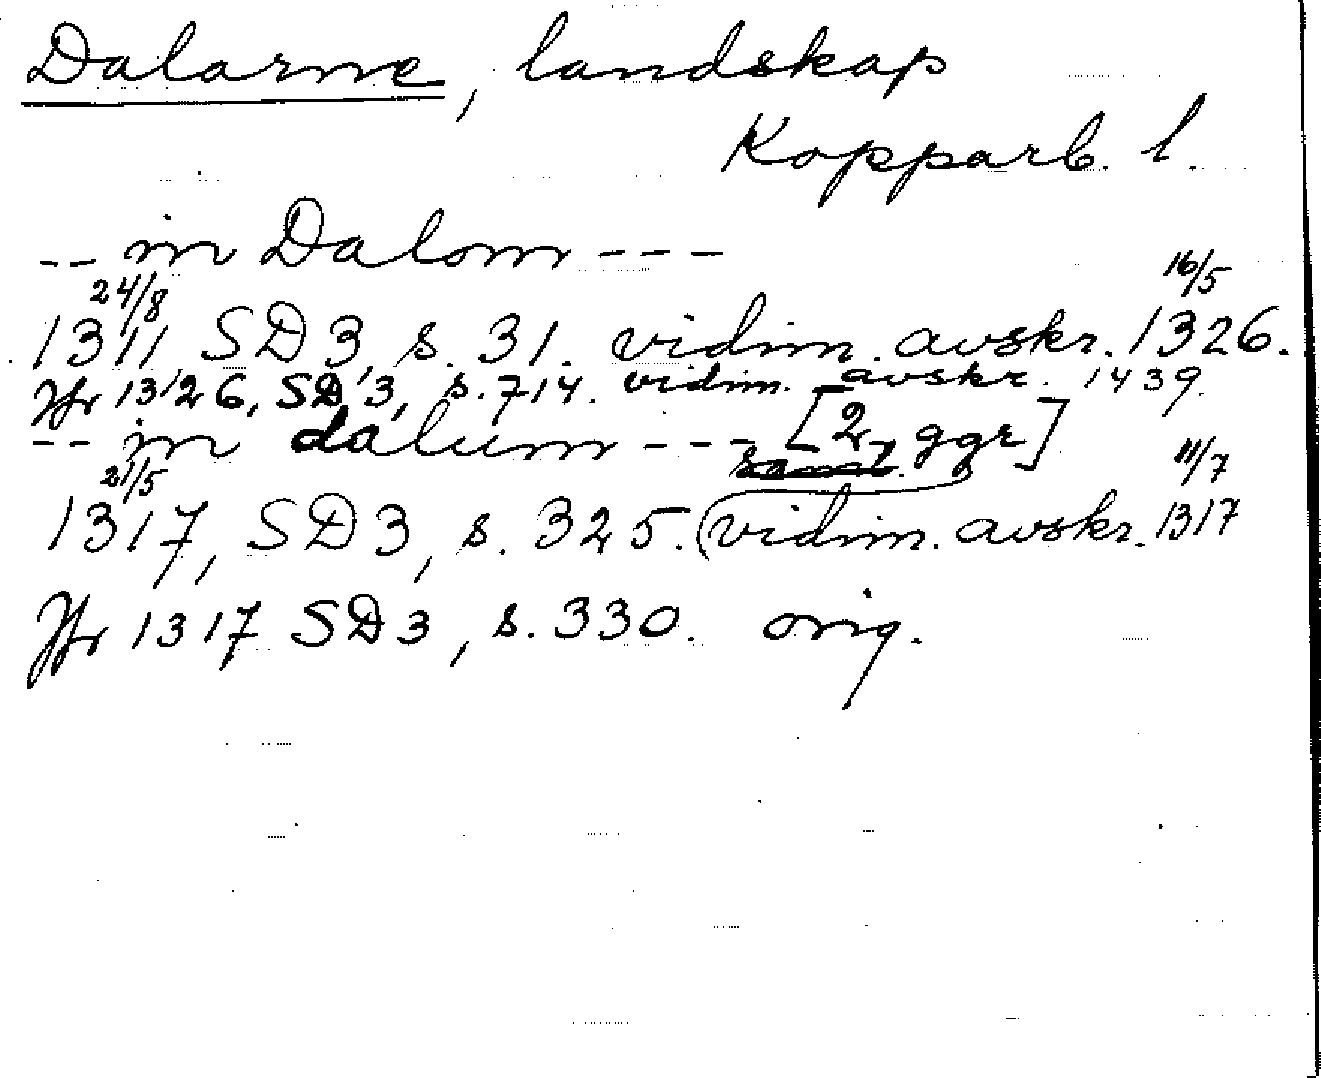 Dalarne, landskap
Kopparb. l.
-- in Dalom ---
24/8 16/5
1311 SD3, s. 31. vidim. avskr. 1326.
Jfr 1326, SD 3, s. 714. vidim. avskr. 1439.
-- in dalum --- [2 ggr]
21/5 11/7
1317, SD3, s. 325. vidim. avskr. 1317
Jfr 1317 SD3, s. 330. orig.